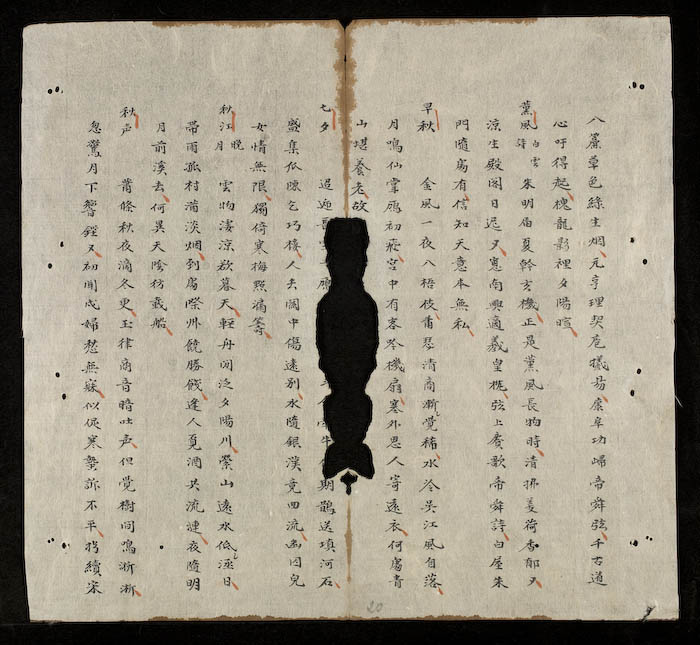 八簾草色綠生烟元亨理契庖犧易康阜功歸帝舜弦千古道
心吁得起槐龍影裡夕陽暄
薰風 白雲詩 朱明届夏幹玄機正是薰風長物時清拂芰荷香郁又
凉生殿閣日遲又窓南興適羲皇枕弦上賡歌帝舜詩白屋朱
門隨寓有信知天意本無私
早秋 金風一夜八梧枝甫琴清商漸覺稀水冷吴江風自落
月鳴仙掌鴈初飛宮中有寒機扇塞外思人寄遠衣何處青
山堪養老故
七夕 迢迢 牛 期鵲送填河石
盛集瓜隙乞巧樓人去閣中傷遠別水隨銀漢竟西流幽因兒
女情無限獨倚寒梅照滿簪
秋江晚月 雲物淒凉欲暮天輕舟閑泛夕陽川縈山遠水低日
帶雨孤村蒲淡烟到處際州饒勝餞逢人覓酒共流連夜隨明
月前溪去何異天陰訪戴船
秋声 蕭條秋夜滴冬更玉律商音暗吐声但覺樹間鳴淅淅
忽驚月下響鏗又初聞戍婦愁無寐似促寒蛩訴不平續宋
20